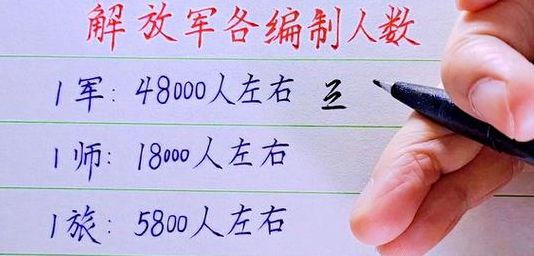 解放军各编制人数
1军：48000人左右
1师：18000人左右
1旅：5800人左右